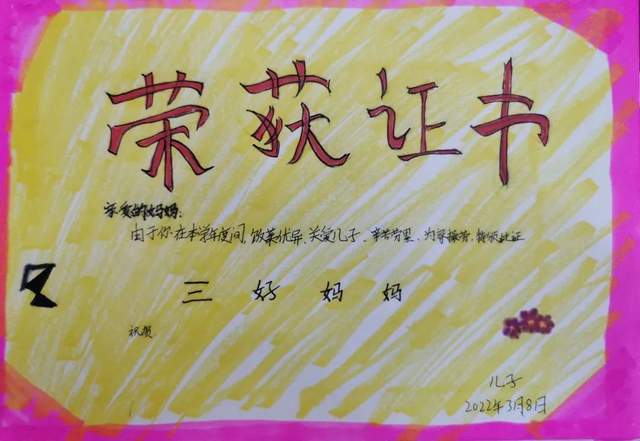 荣获证书
亲爱的妈妈:
由于你在本学年度间,饭菜优异、关爱儿子、辛苦劳累、为家操劳,特颁此证
三好妈妈
祝贺
儿子
2022年3月8日